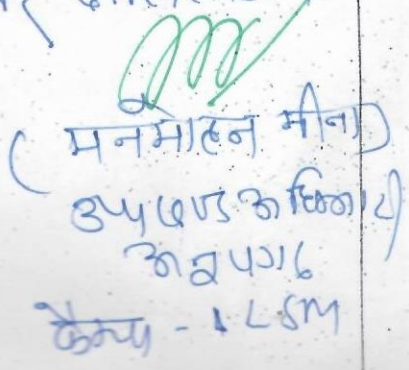 (मनमोहन मीना)
उपखण्ड अधिकारी
अनूपगढ़
कैम्प - 1 LSM